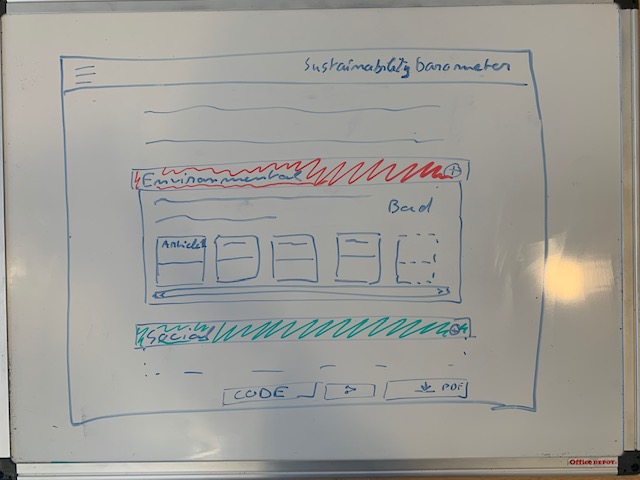 Sustainability barometer
Environmental
Bad
Articles
Social
CODE
PDF
Office DEPOT